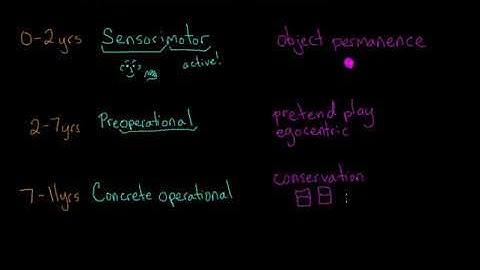 0-2yrs Sensorimotor object permanence
active!
2-7yrs Preoperational pretend play
egocentric
7-11yrs Concrete operational conservation